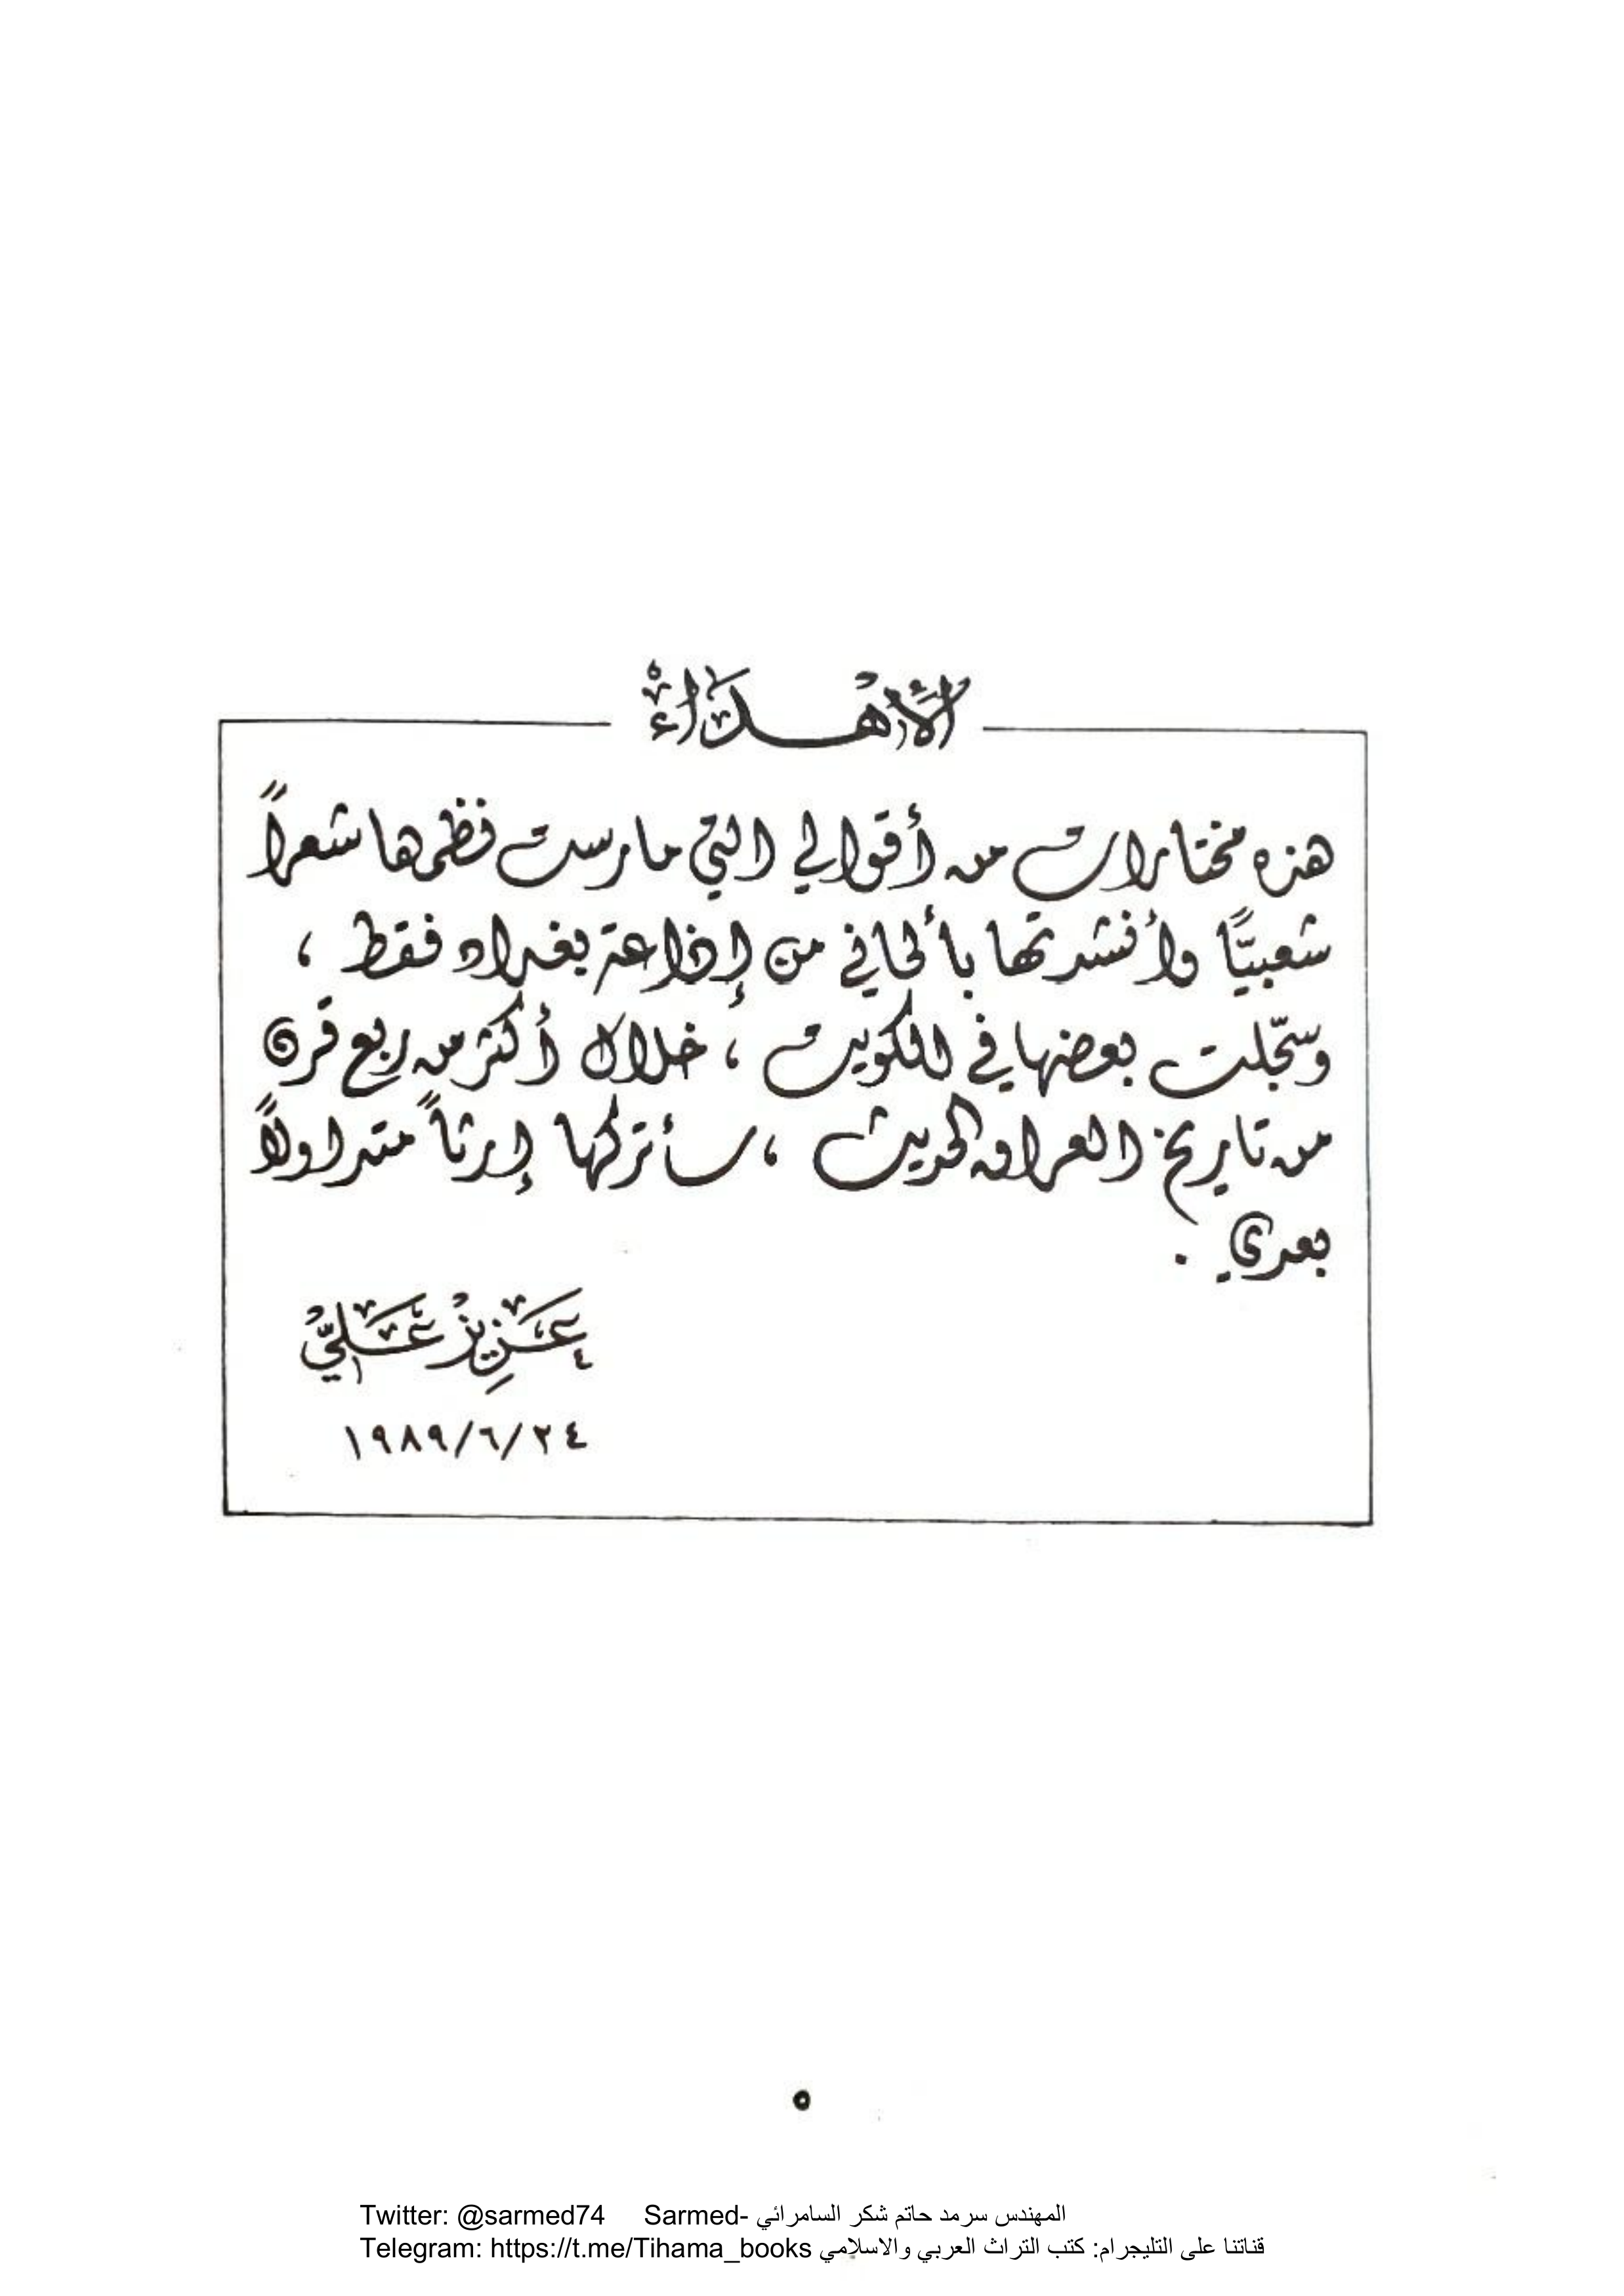 الأهداء
هذه مختارات من أقوالي التي مارست نظمها شعراً
شعبيّاً وأنشدتها بألحاني من إذاعة بغداد فقط ،
وسجّلت بعضها في الكويت ، خلال أكثر من ربع قرن
من تاريخ العراق الحديث ، سأتركها إرثاً متداولاً
بعدي .
عَزِيزْ عَلِيّ
١٩٨٩/٦/٢٤
٥
Twitter: @sarmed74 Sarmed- المهندس سرمد حاتم شكر السامرائي
Telegram: https://t.me/Tihama_books قناتنا على التليجرام: كتب التراث العربي والاسلامي